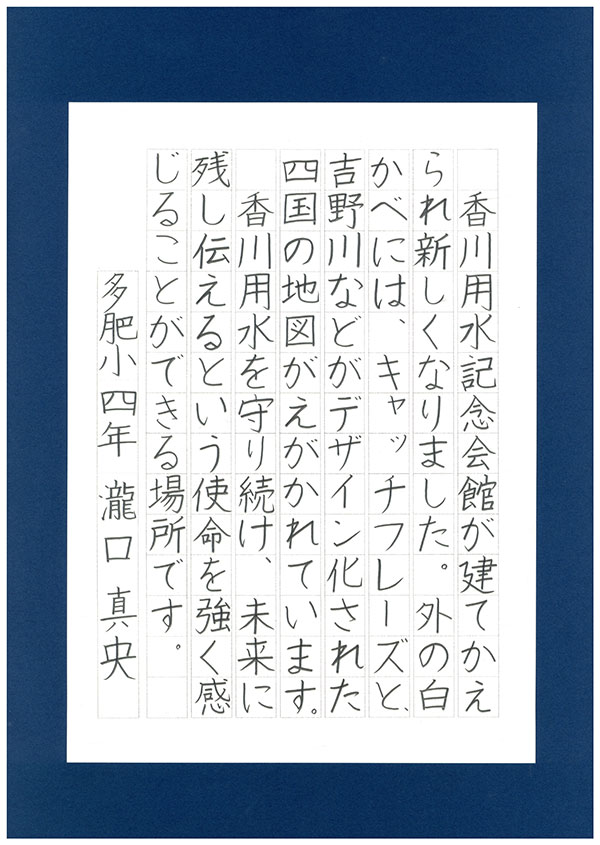 香川用水記念会館が建てかえ
られ新しくなりました。外の白
かべには、キャッチフレーズと、
吉野川などがデザイン化された
四国の地図がえがかれています。
　香川用水を守り続け、未来に
残し伝えるという使命を強く感
じることができる場所です。
多肥小四年 瀧口真央